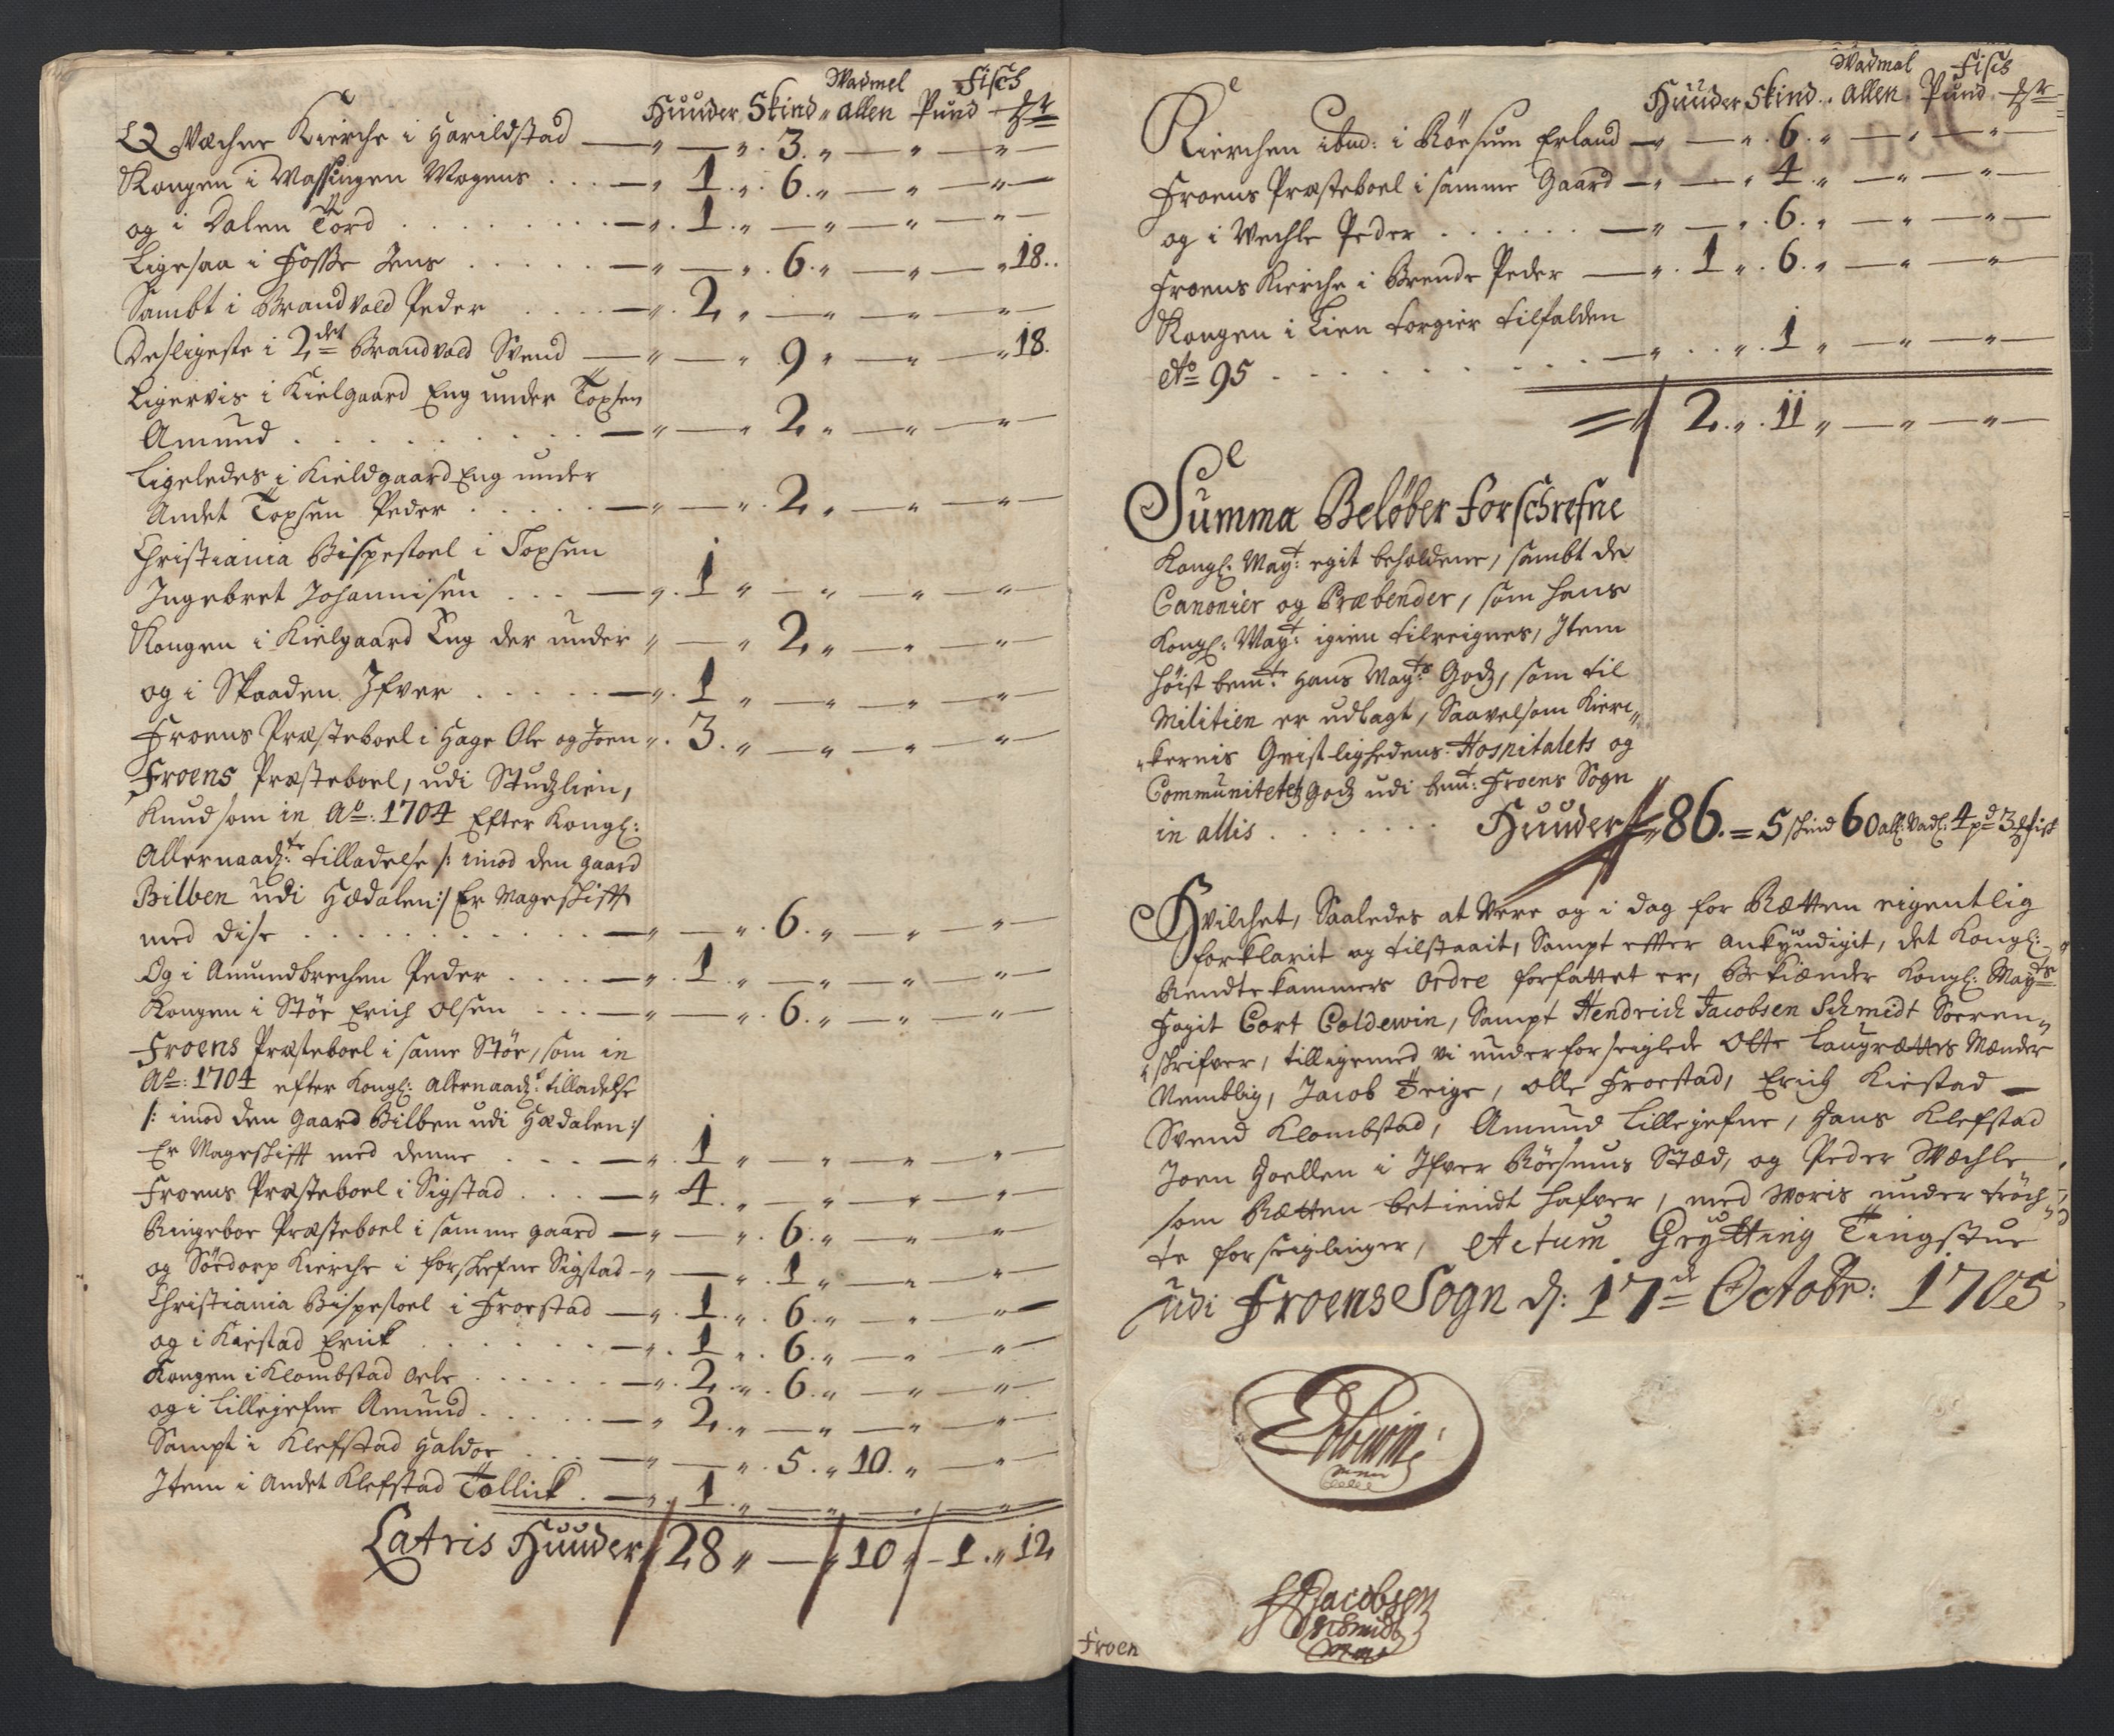 Huuder Skind Wadmel allen Fisch Pund
Qvæchne Kierche i Harildstad — „ — „ 3 „ — „ — „ —
Kongen i Wassingen Mogens . . . — „ 1 „ 6 „ — „ — „ —
og i Dalen Tord . . . — „ 1 „ — „ — „ — „ —
Ligesaa i Fosse Jens . . . — „ — „ 6 „ — „ — „ 18
Sambt i Brandvold Peder . . . — „ 2 „ — „ — „ — „ —
Desligeste i 2det Brandvold Svend — „ — „ 9 „ — „ — „ 18
Ligervis i Kielgaard Eng under Toxsen
Amund . . . — „ — „ 2 „ — „ — „ —
Ligeledes i Kieldgaard Eng under
Andet Toxsen Peder . . . — „ — „ 2 „ — „ — „ —
Christiania Bispestoel i Toxsen
Ingebret Johannisen . . . — „ 1 „ — „ — „ — „ —
Kongen i Kielgaard Eng der under „ — „ 2 „ — „ — „ —
og i Skaaden Ifver . . . — „ 1 „ — „ — „ — „ —
Froens Præsteboel i Hage Ole og Joen „ 3 „ — „ — „ — „ —
Froens Præsteboel, udi Studzlien,
Knud som in Ao: 1704 Efter Kongl:
Allernaadz:te tilladelse /: imod den gaard
Bilben udi Hædalen :/ Er Mageskifft
med dise . . . — „ — „ 6 „ — „ — „ —
Og i Amundbrechen Peder . . . — „ 1 „ — „ — „ — „ —
Kongen i Stör Erich Olsen . . . — „ — „ 6 „ — „ — „ —
Froens Præsteboel i same Stör, som in
Ao: 1704 efter Kongl: allernaadz: tilladelse
/: imod den Gaard Bilben udi Hædalen :/
Er Mageskifft med denne . . . — „ 1 „ — „ — „ — „ —
Froens Præsteboel i Sigstad . . . — „ 4 „ — „ — „ — „ —
Ringeboe Præsteboel i samme gaard — „ — „ 6 „ — „ — „ —
og Sördorp Kierche i forskrefne Sigstad — „ — „ 1 „ — „ — „ —
Christiania Bispestoel i Froestad — „ 1 „ 6 „ — „ — „ —
og i Kiestad Erick . . . — „ 1 „ 6 „ — „ — „ —
Kongen i Klombstad Oele . . . — „ 2 „ 6 „ — „ — „ —
og i Lillejefne Amund . . . — „ 2 „ — „ — „ — „ —
Sampt i Klefstad Haldor . . . — „ — „ 5 „ 10 „ — „ —
Item i Andet Klefstad Tollick . — „ 1 „ — „ — „ — „ —
Latris Huuder 28 „ — „ 10 „ 1 „ 12
Huuder Skind Wadmal allen Fisch Pund
Kierchen ibid: i Börsum Erland — „ — „ 6 „ — „ — „ —
Froens Præsteboel i samme Gaard — „ — „ 4 „ — „ — „ —
og i Wechle Peder . . . — „ — „ 6 „ — „ — „ —
Froens Kierche i Brende Peder — „ 1 „ 6 „ — „ — „ —
Kongen i Lien Torgier tilfalden
Ao 95 . . . — „ . . „ 1 „ — „ — „ —
2 „ 11 „ — „ — „ —
Summa Beløber forschrefne
Kongl: Mayt: egit beholdene, sambt de
Canonier og Præbender, som hans
Kongl: Mayt: igien tilreignes, Item
höist bemt: Hans Mayts Godz, som til
Militien er udlagt, Saavelsom Kierc„
„kernis Geistlighedens Hospitalets og
Communitetetz Godz udi bemt: Froens Sogn
in allis . . . Huuder 86 = 5 skind 60 all: Vadl: 4 pd 3 fisk
Hvilchet, Saaledes at Were og i dag for Rætten eigentlig
forklarit og tilstaait, Sampt efter ankyndigit, det Kongl:
Rendtekammers Ordre forfattet er, Bekiænder Kongl: Mayts
Fogit Cort Coldewin, Sampt Hendrich Jacobsen Schmidt Soren„
„skrifver, tilligemed vi underforseiglede Otte Laugrættes Mænder
Nemblig, Jacob Teige, Olle Froestad, Erich Kiestad —
Svend Klombstad, Amund Lillejefne, Hans Klefstad
Joen Goellen i Ifver Börsums Stæd, og Peder Wechle
som Rætten betiendt hafver, med woris undertröch„
te forseiglinger, Actum Grytting Tingstue
udi Froens Sogn d: 17de Octobr: 1705
Coldewin
HJacobsen
Schmidt
Froen